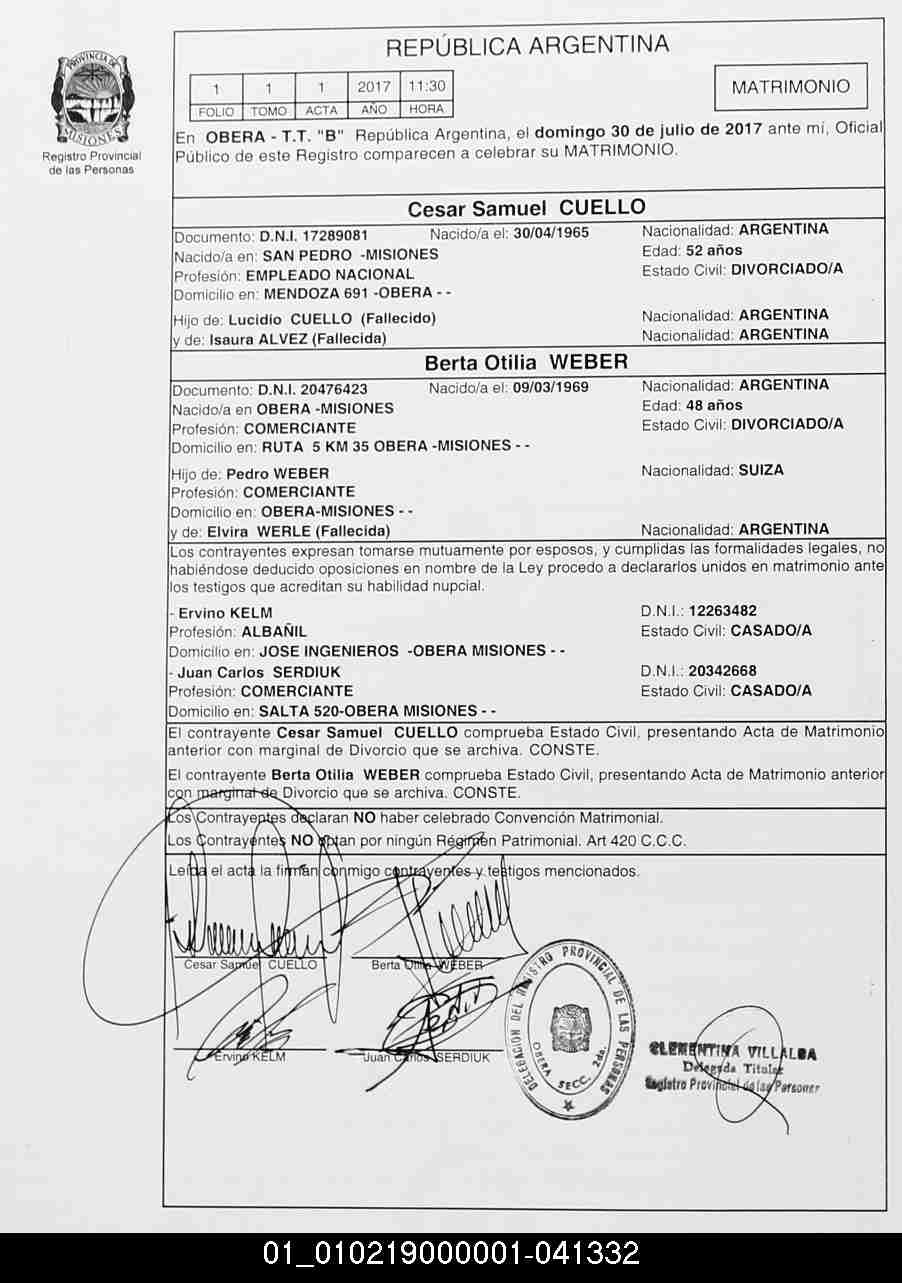 PROVINCIA DE
MISIONES
Registro Provincial
de las Personas
REPÚBLICA ARGENTINA
1 1 1 2017 11:30
FOLIO TOMO ACTA AÑO HORA
MATRIMONIO
En OBERA - T.T. "B" República Argentina, el domingo 30 de julio de 2017 ante mí, Oficial
Público de este Registro comparecen a celebrar su MATRIMONIO.
Cesar Samuel CUELLO
Documento: D.N.I. 17289081 Nacido/a el: 30/04/1965 Nacionalidad: ARGENTINA
Nacido/a en: SAN PEDRO -MISIONES Edad: 52 años
Profesión: EMPLEADO NACIONAL Estado Civil: DIVORCIADO/A
Domicilio en: MENDOZA 691 -OBERA - -
Hijo de: Lucidio CUELLO (Fallecido) Nacionalidad: ARGENTINA
y de: Isaura ALVEZ (Fallecida) Nacionalidad: ARGENTINA
Berta Otilia WEBER
Documento: D.N.I. 20476423 Nacido/a el: 09/03/1969 Nacionalidad: ARGENTINA
Nacido/a en OBERA -MISIONES Edad: 48 años
Profesión: COMERCIANTE Estado Civil: DIVORCIADO/A
Domicilio en: RUTA 5 KM 35 OBERA -MISIONES - -
Hijo de: Pedro WEBER Nacionalidad: SUIZA
Profesión: COMERCIANTE
Domicilio en: OBERA-MISIONES - -
y de: Elvira WERLE (Fallecida) Nacionalidad: ARGENTINA
Los contrayentes expresan tomarse mutuamente por esposos, y cumplidas las formalidades legales, no
habiéndose deducido oposiciones en nombre de la Ley procedo a declararlos unidos en matrimonio ante
los testigos que acreditan su habilidad nupcial.
- Ervino KELM D.N.I.: 12263482
Profesión: ALBAÑIL Estado Civil: CASADO/A
Domicilio en: JOSE INGENIEROS -OBERA MISIONES - -
- Juan Carlos SERDIUK D.N.I.: 20342668
Profesión: COMERCIANTE Estado Civil: CASADO/A
Domicilio en: SALTA 520-OBERA MISIONES - -
El contrayente Cesar Samuel CUELLO comprueba Estado Civil, presentando Acta de Matrimonio
anterior con marginal de Divorcio que se archiva. CONSTE.
El contrayente Berta Otilia WEBER comprueba Estado Civil, presentando Acta de Matrimonio anterior
con marginal de Divorcio que se archiva. CONSTE.
Los Contrayentes declaran NO haber celebrado Convención Matrimonial.
Los Contrayentes NO optan por ningún Régimen Patrimonial. Art 420 C.C.C.
Leída el acta la firman conmigo contrayentes y testigos mencionados.
Cesar Samuel CUELLO Berta Otilia WEBER
Ervino KELM Juan Carlos SERDIUK
DELEGACION DEL REGISTRO PROVINCIAL DE LAS PERSONAS
OBERA SECC. 2da.
CLEMENTINA VILLALBA
Delegada Titular
Registro Provincial de las Personas
01_010219000001-041332